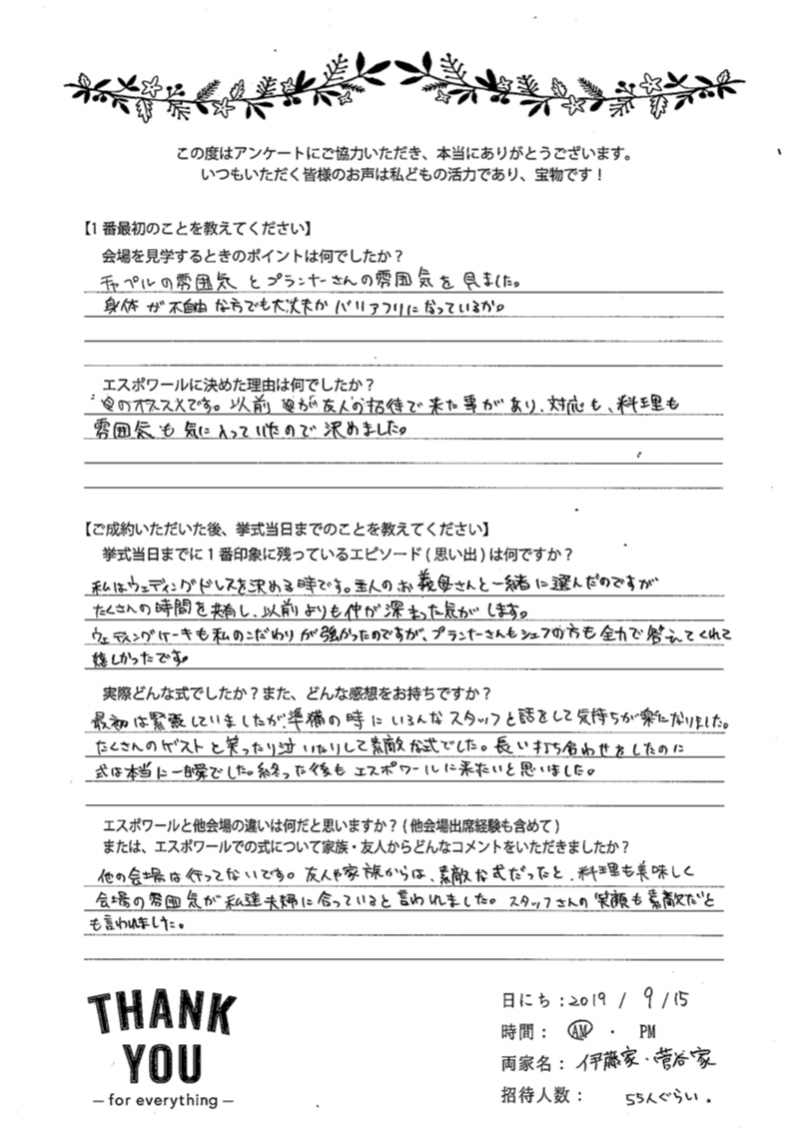 この度はアンケートにご協力いただき、本当にありがとうございます。
いつもいただく皆様のお声は私どもの活力であり、宝物です！
【1番最初のことを教えてください】
会場を見学するときのポイントは何でしたか？
チャペルの雰囲気とプランナーさんの雰囲気を見ました。
身体が不自由な方でも大丈夫かバリアフリになっているか。
エスポワールに決めた理由は何でしたか？
のオススメです。以前 が友人の招待で来た事があり、対応も、料理も
雰囲気も気に入っていたので決めました。
【ご成約いただいた後、挙式当日までのことを教えてください】
挙式当日までに1番印象に残っているエピソード(思い出)は何ですか？
私はウェディングドレスを決める時です。主人のお義母さんと一緒に選んだのですが
たくさんの時間を共有し、以前よりも仲が深まった気がします。
ウェディングケーキも私のこだわりが強かったのですが、プランナーさんもシェフの方も全力で答えてくれて
嬉しかったです。
実際どんな式でしたか？また、どんな感想をお持ちですか？
最初は緊張していましたが、準備の時にいろんなスタッフと話をして気持ちが楽になりました。
たくさんのゲストと笑ったり泣いたりして素敵な式でした。長い打ち合わせをしたのに
式は本当に一瞬でした。終った後もエスポワールに来たいと思いました。
エスポワールと他会場の違いは何だと思いますか？(他会場出席経験も含めて)
または、エスポワールでの式について家族・友人からどんなコメントをいただきましたか？
他の会場は行ってないです。友人や家族からは、素敵な式だったと、料理も美味しく
会場の雰囲気が私達夫婦に合っていると言われました。スタッフさんの笑顔も素敵だと
も言われました。
THANK
YOU
— for everything —
日にち：2019 / 9/15
時間： AM ・ PM
両家名：伊藤家・菅谷家
招待人数： 55人ぐらい。